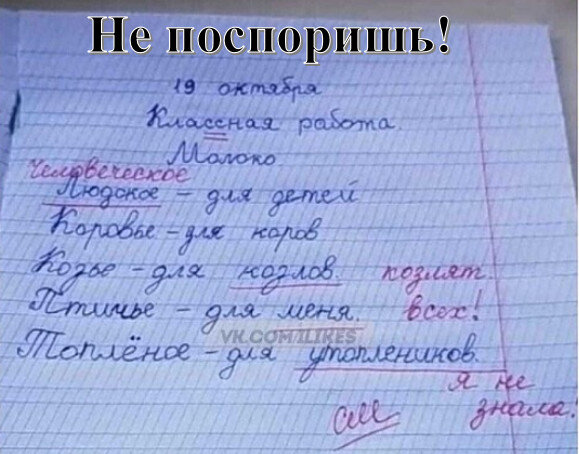 Не поспоришь!
19 октября
Классная работа.
Молоко
Человеческое
Людское - для детей
Коровье - для коров
Козье - для козлов. козлят.
Птичье - для меня. всех!
VK.COM/ILIKES
Топлёное - для утоплеников.
я не
см знала!